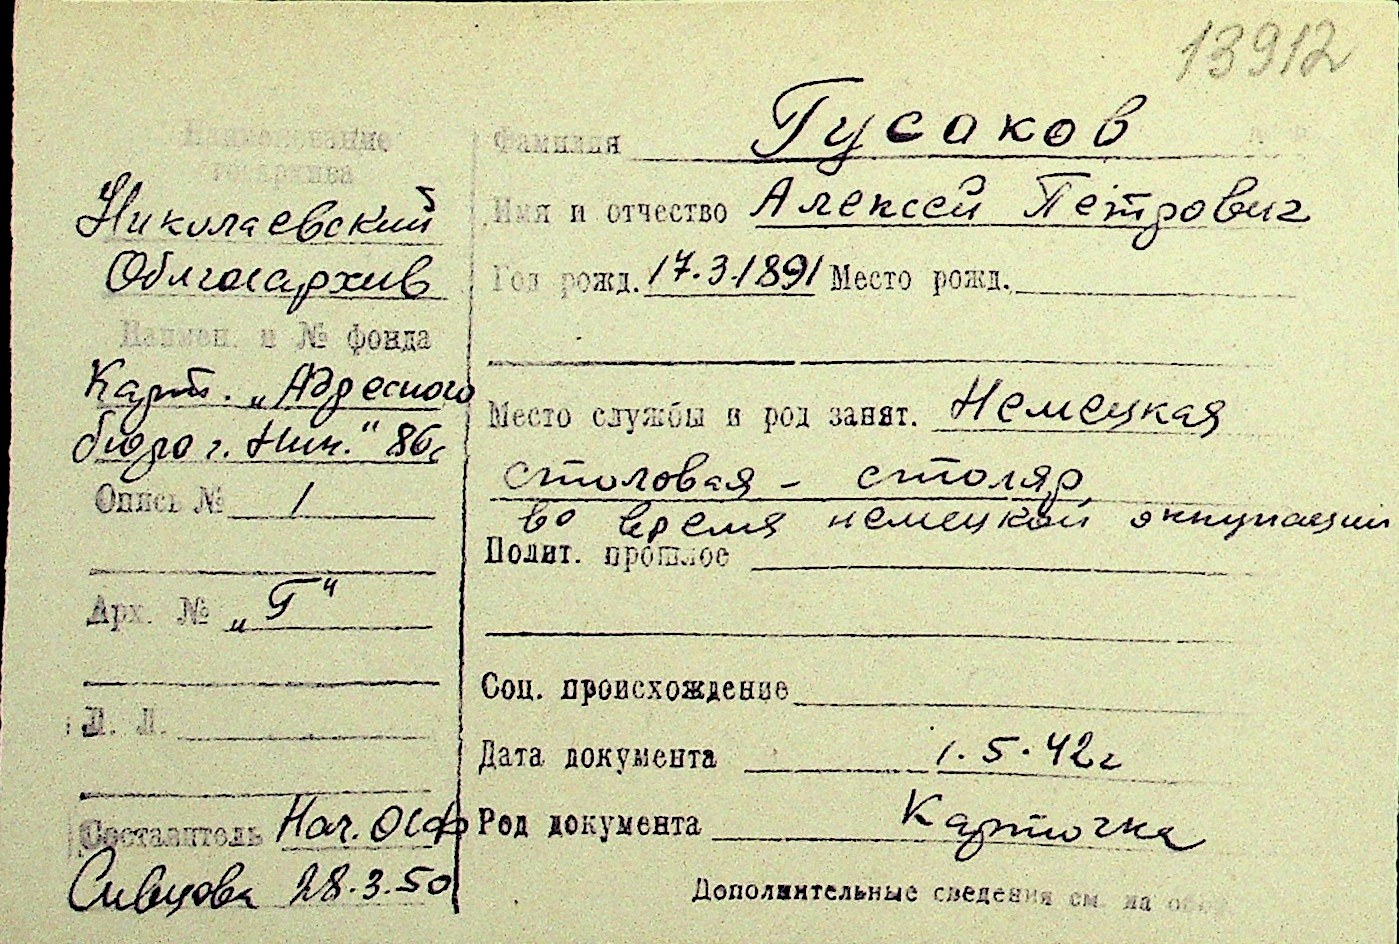 13912
Наименование
госархива
Николаевский
Облгосархив
Наимен. и № фонда
Карт. „Адресного
бюро г. Ник." 86,
Опись № 1
Арх. № „Г"
Л. Л.
Составитель Нач. ОГФ
Сивцова 28.3.50
Фамилия Гусаков
Имя и отчество Алексей Петрович
Год рожд. 17.3.1891 Место рожд.
Место службы и род занят. Немецкая
столовая - столяр,
во время немецкой оккупации
Полит. прошлое
Соц. происхождение
Дата документа 1.5.42г
Род документа Карточка
Дополнительные сведения см. на обор.